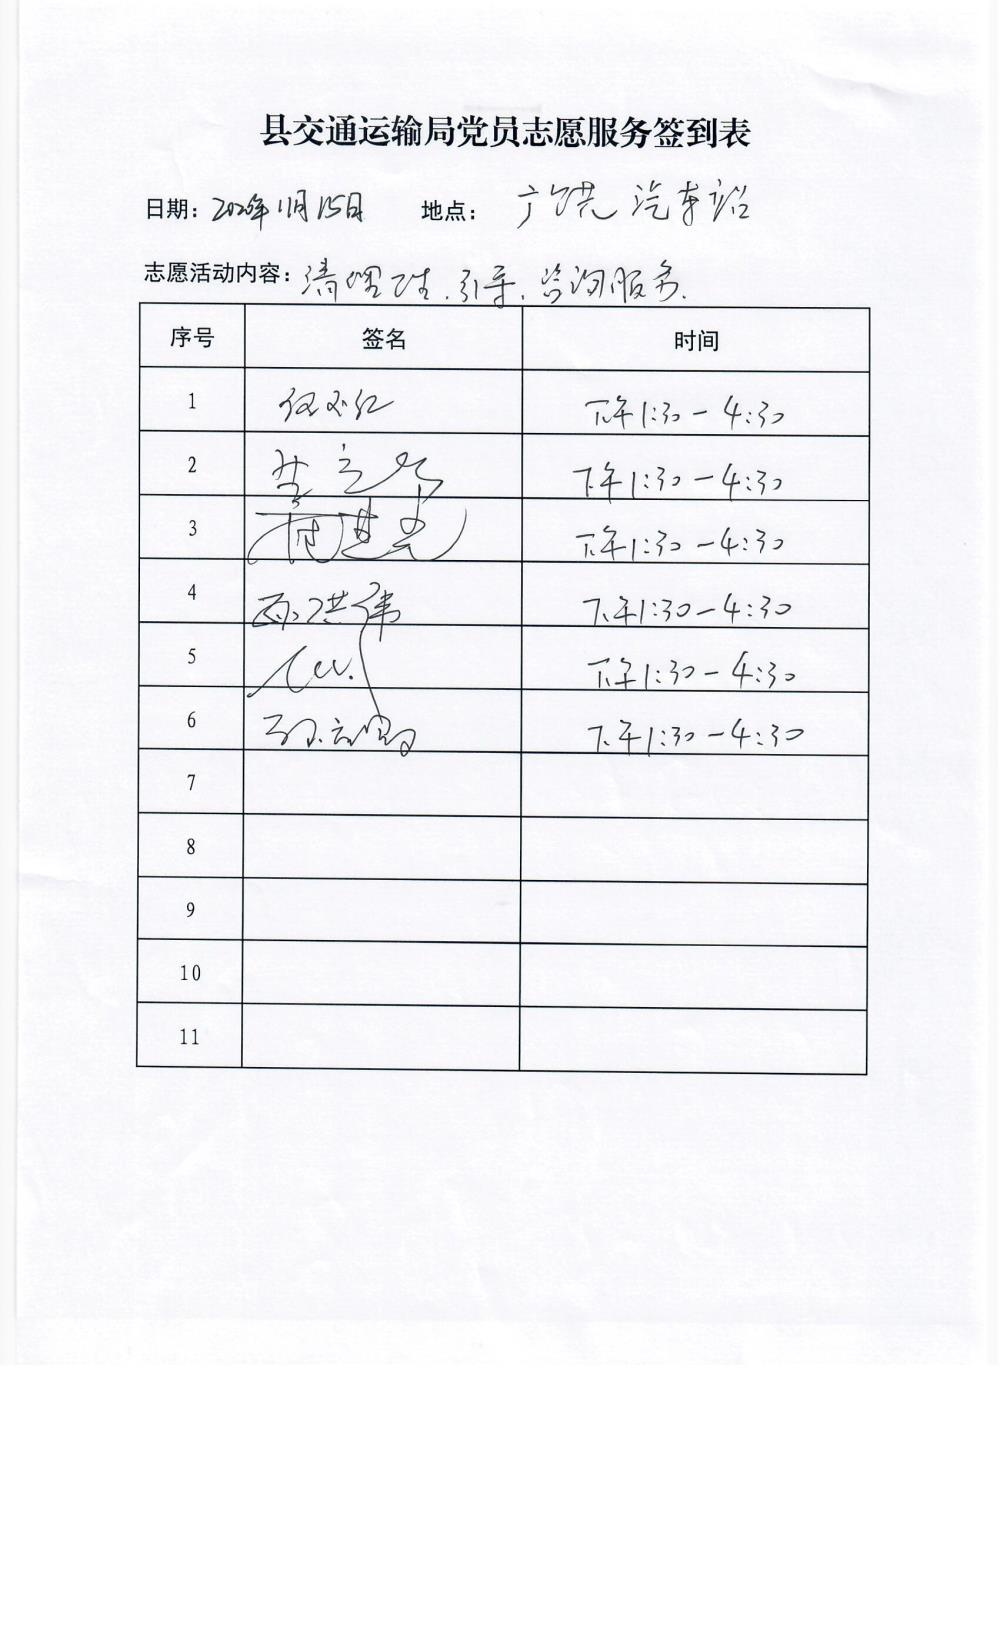 县交通运输局党员志愿服务签到表
日期: 2020年11月15日 地点: 汽车站
志愿活动内容: 清理卫生.引导.咨询服务.
序号 签名 时间
1 下午1:30-4:30
2 下午1:30-4:30
3 下午1:30-4:30
4 洪伟 下午1:30-4:30
5 下午1:30-4:30
6 下午1:30-4:30
7
8
9
10
11